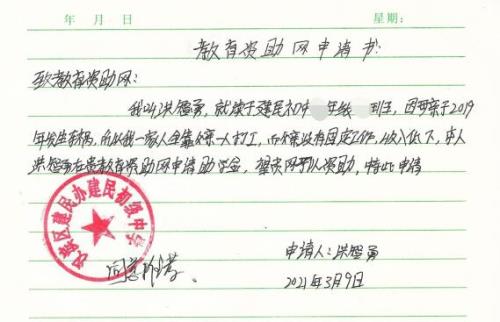 年 月 日 星期：
教育资助网申请书
致教育资助网：
我叫洪智勇，就读于建民初中 年级 班，因母亲于2019
年发生车祸，所以我一家人全靠 一人打工，而 没有固定工作，收入低下，本人
洪智勇在贵教育资助网申请助学金，望贵网予以资助，特此申请
区建民办建民初级中学
同意
申请人：洪智勇
2021年3月9日